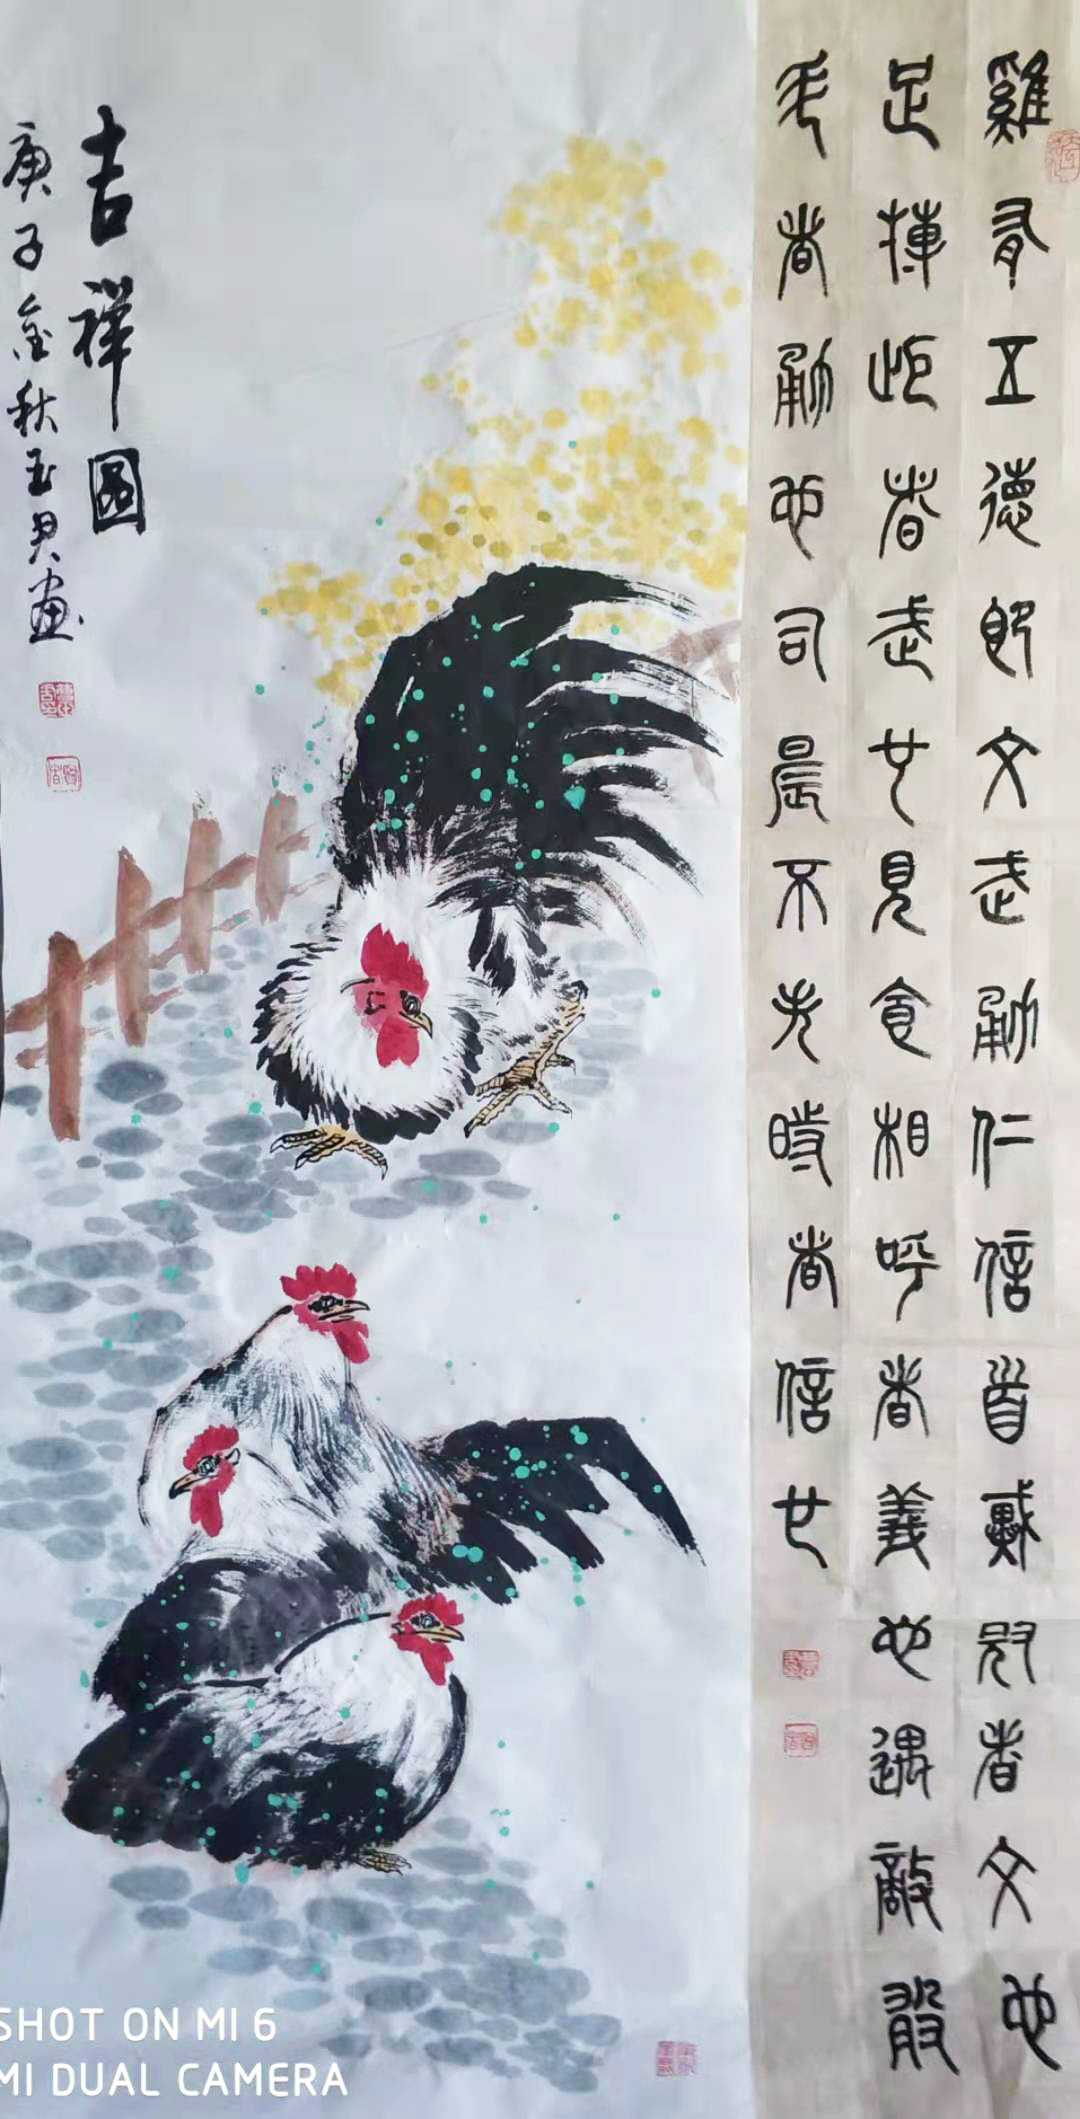 雞有五德即文武勇仁信首戴冠者文也
足搏距者武也見食相呼者義也遇敵敢
者勇也司晨不失時者信也
吉祥圖
庚子金秋玉君畫
SHOT ON MI 6
MI DUAL CAMERA